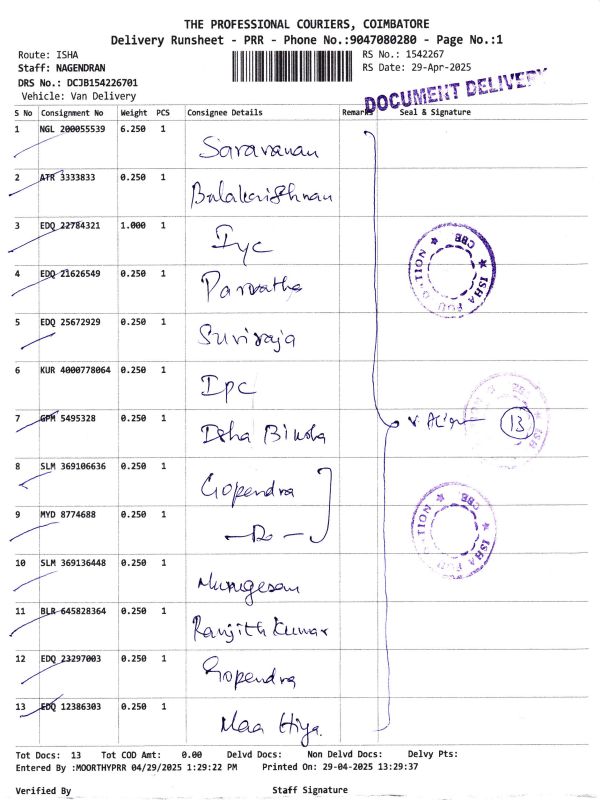 THE PROFESSIONAL COURIERS, COIMBATORE
Delivery Runsheet - PRR - Phone No.:9047080280 - Page No.:1
Route: ISHA
RS No.: 1542267
Staff: NAGENDRAN
RS Date: 29-Apr-2025
DRS No.: DCJB154226701
Vehicle: Van Delivery
DOCUMENT DELIVERY
S No Consignment No Weight PCS Consignee Details Remarks Seal & Signature
1 NGL 200055539 6.250 1 Saravanan
2 ATR 3333833 0.250 1 Balakrishnan
3 EDQ 22784321 1.000 1 Iyc
4 EDQ 21626549 0.250 1 Parvatha
5 EDQ 25672929 0.250 1 Suviraja
6 KUR 4000778064 0.250 1 Ipc
7 GPM 5495328 0.250 1 Isha
13
8 SLM 369106636 0.250 1 Gopendra
9 MYD 8774688 0.250 1
10 SLM 369136448 0.250 1 Murugesan
11 BLR 645828364 0.250 1 Ranjith Kumar
12 EDQ 23297003 0.250 1 Gopendra
13 EDQ 12386303 0.250 1 Maa Hiya.
Tot Docs: 13 Tot COD Amt: 0.00 Delvd Docs: Non Delvd Docs: Delvy Pts:
Entered By :MOORTHYPRR 04/29/2025 1:29:22 PM Printed On: 29-04-2025 13:29:37
Verified By Staff Signature